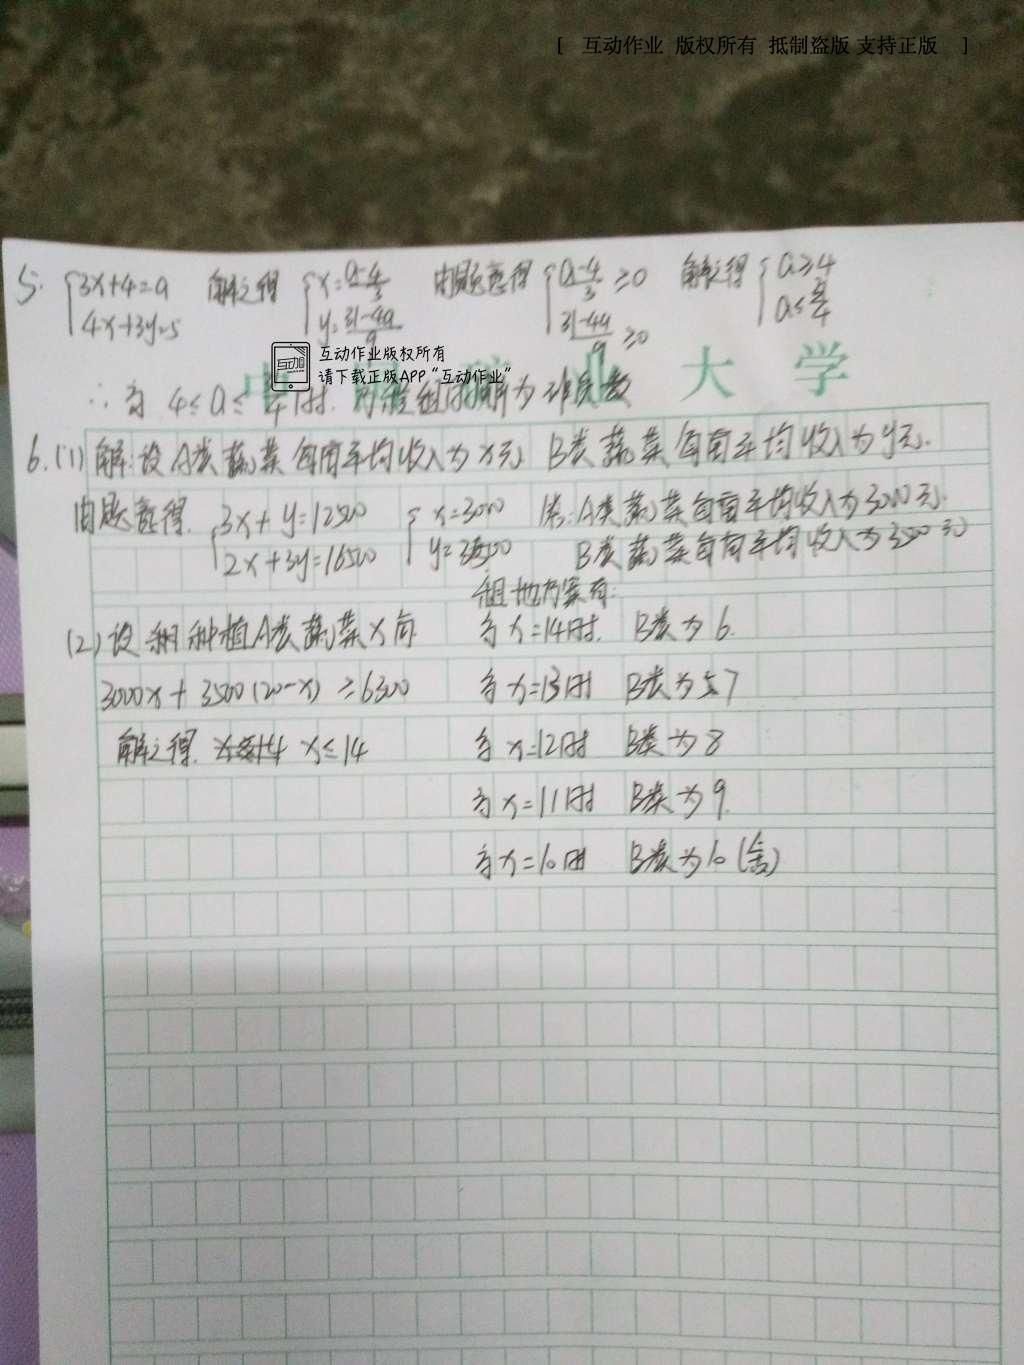 [ 互动作业 版权所有 抵制盗版 支持正版 ]
5. {3x+4=a 解之得 {x=a-4/3 由题意得 {a-4/3≥0 解之得 {a≥4
4x+3y=5 y=31-4a/9 31-4a/9≥0 a≤
互动作业版权所有
请下载正版APP“互动作业”
大 学
∴当 4≤a≤ 时. 方程组的解为非负数
6.(1)解:设A类蔬菜每亩平均收入为x元 B类蔬菜每亩平均收入为y元.
由题意得. {3x+y=12500 {x=3000 答:A类蔬菜每亩平均收入为3000元.
2x+3y=16500 y=3500 B类蔬菜每亩平均收入为3500元
租地方案有:
(2)设 种植A类蔬菜x亩 当x=14时. B类为6.
3000x+3500(20-x)≥6300 当x=13时 B类为7
解之得. x≤14 当x=12时 B类为8
当x=11时 B类为9.
当x=10时 B类为10(舍)